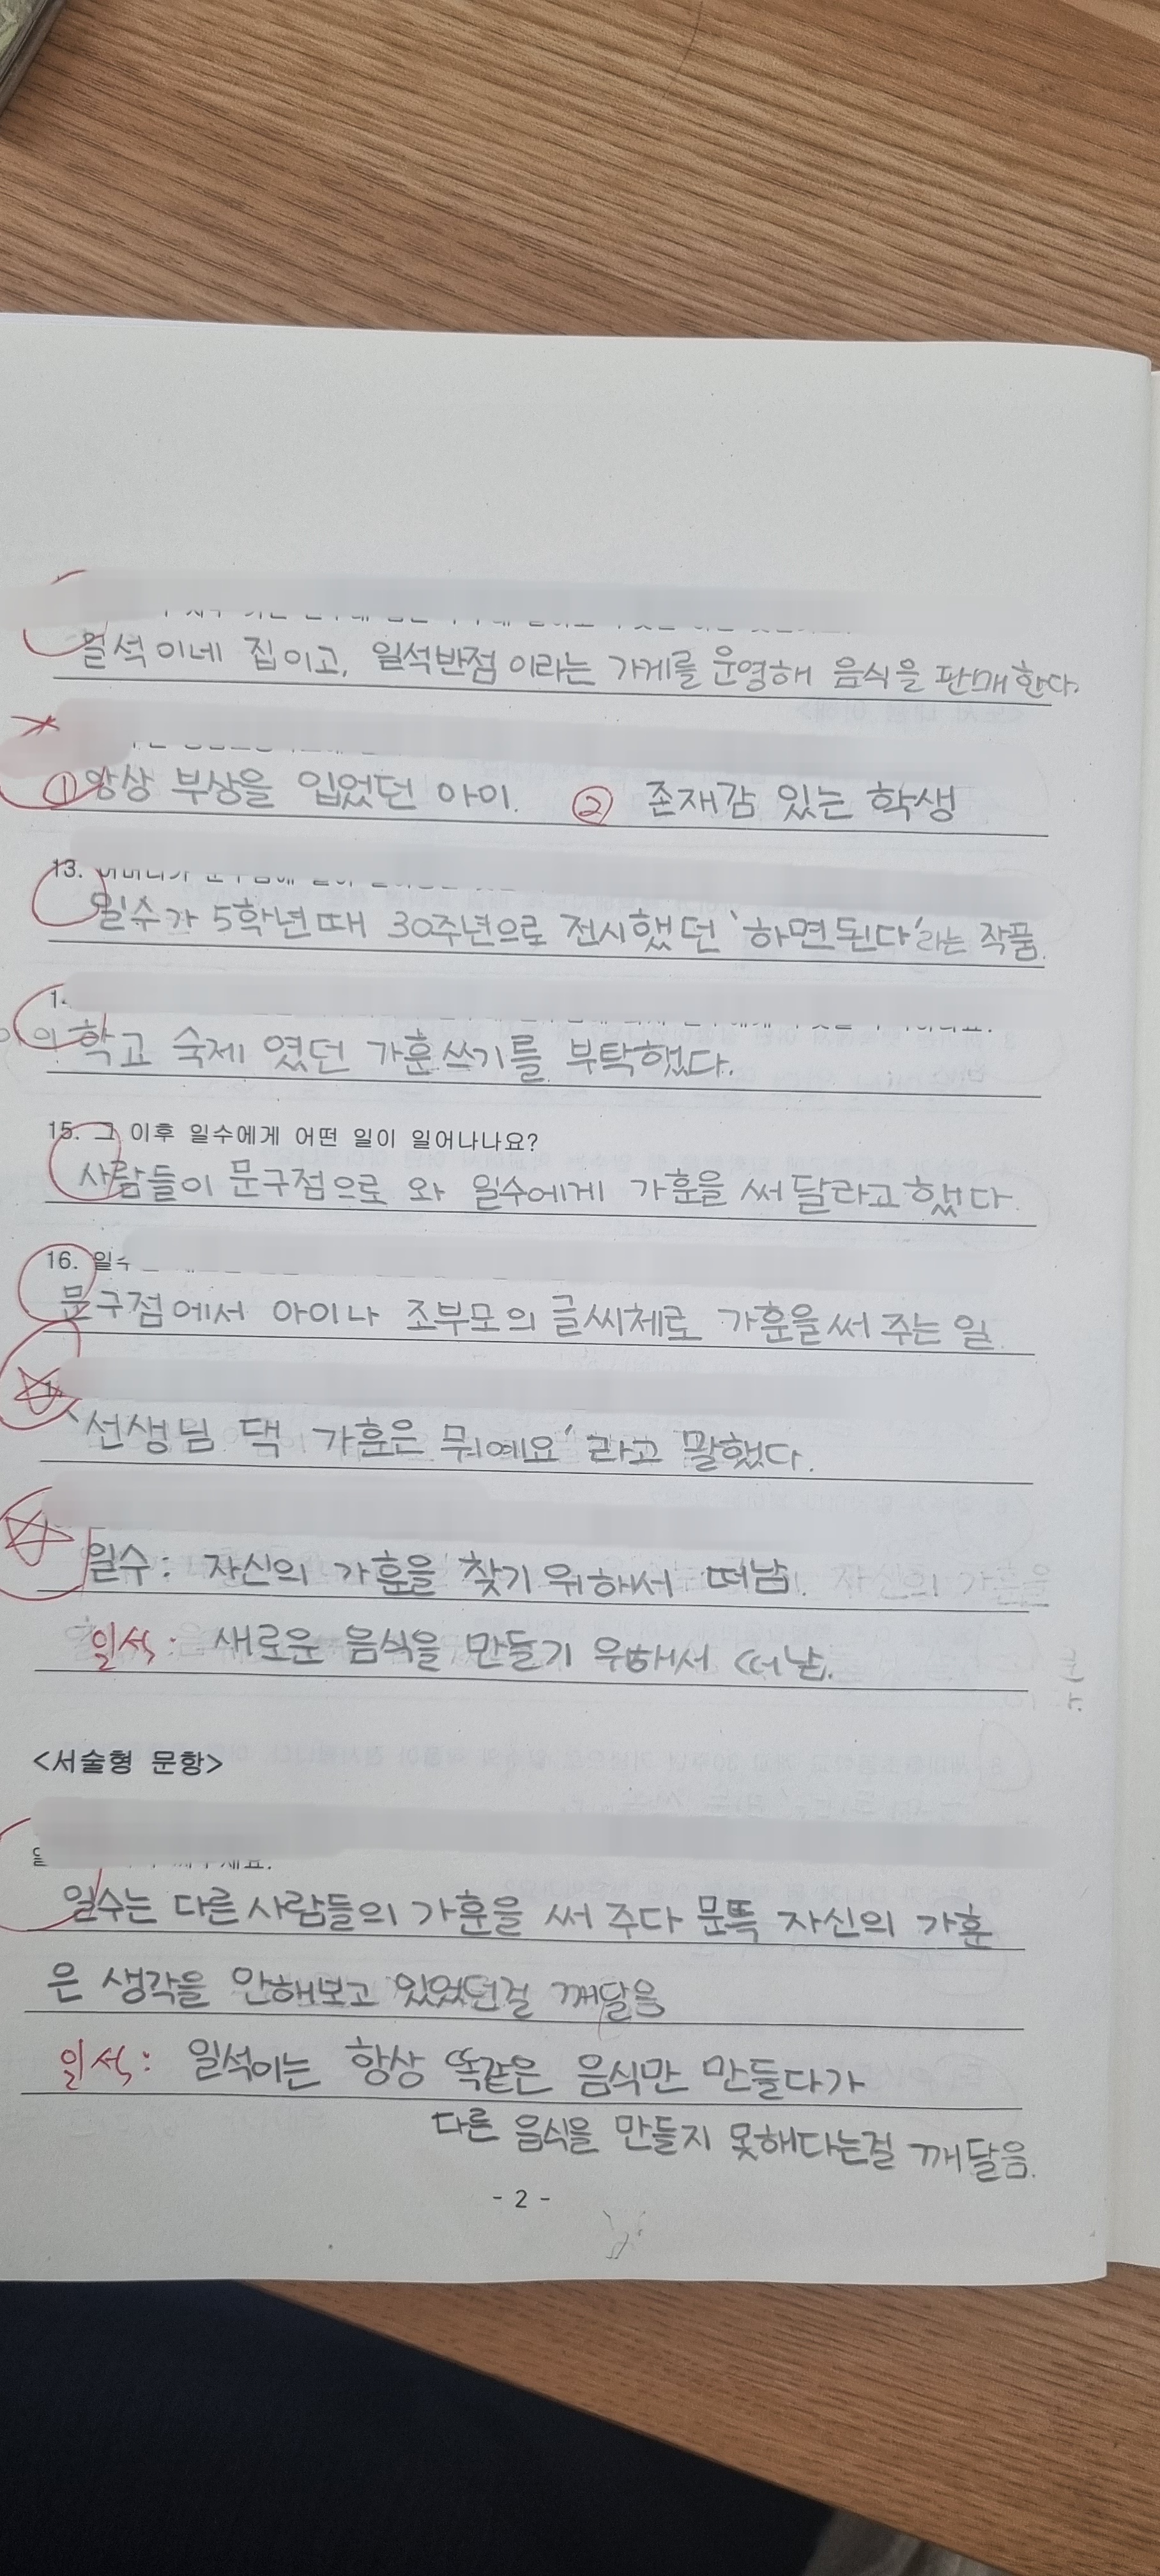 일석이네 집이고, 일석반점이라는 가게를 운영해 음식을 판매한다.
① 항상 부상을 입었던 아이. ② 존재감 있는 학생
13.
일수가 5학년때 30주년으로 전시했던 '하면된다'라는 작품.
의 학교 숙제 였던 가훈쓰기를 부탁했다.
15. 그 이후 일수에게 어떤 일이 일어나나요?
사람들이 문구점으로 와 일수에게 가훈을 써달라고했다.
16. 일수
문구점에서 아이나 조부모의 글씨체로 가훈을써 주는 일
'선생님 댁 가훈은 뭐예요'라고 말했다.
일수: 자신의 가훈을 찾기위해서 떠남.
일석: 새로운 음식을 만들기 위해서 떠남.
<서술형 문항>
일수는 다른사람들의 가훈을 써 주다 문뜩 자신의 가훈
은 생각을 안해보고 있었던걸 깨달음
일석: 일석이는 항상 똑같은 음식만 만들다가
다른 음식을 만들지 못해다는걸 깨달음.
- 2 -